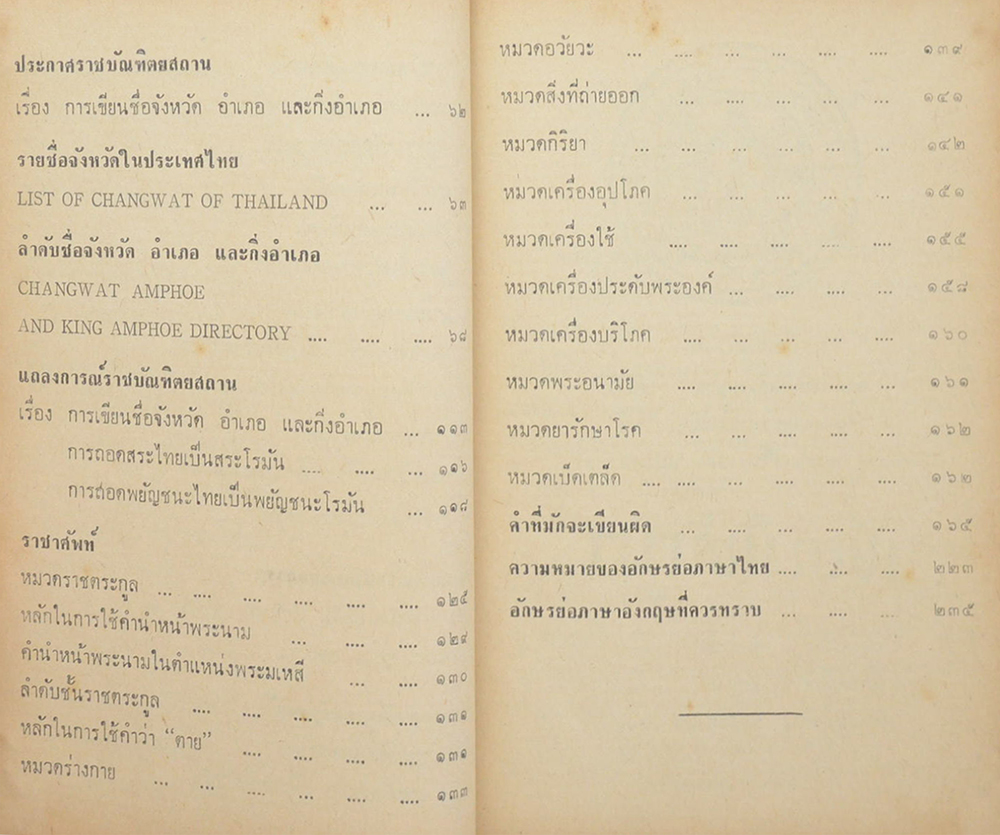 ประกาศราชบัณฑิตยสถาน
เรื่อง การเขียนชื่อจังหวัด อำเภอ และกิ่งอำเภอ ... ๖๒
รายชื่อจังหวัดในประเทศไทย
LIST OF CHANGWAT OF THAILAND ... ... ๖๓
ลำดับชื่อจังหวัด อำเภอ และกิ่งอำเภอ
CHANGWAT AMPHOE
AND KING AMPHOE DIRECTORY .... .... .... ๖๘
แถลงการณ์ราชบัณฑิตยสถาน
เรื่อง การเขียนชื่อจังหวัด อำเภอ และกิ่งอำเภอ ... ๑๑๓
การถอดสระไทยเป็นสระโรมัน .... .... ... ๑๑๖
การถอดพยัญชนะไทยเป็นพยัญชนะโรมัน ... ๑๑๘
ราชาศัพท์
หมวดราชตระกูล ... .... .... .... .... .... ๑๒๕
หลักในการใช้คำนำหน้าพระนาม ... .... .... ๑๒๙
คำนำหน้าพระนามในตำแหน่งพระมเหสี ... .... ๑๓๐
ลำดับชั้นราชตระกูล .... .... .... .... .... ๑๓๑
หลักในการใช้คำว่า “ตาย” .... .... .... .... ๑๓๑
หมวดร่างกาย ... ... .... ... .... .... ๑๓๓
หมวดอวัยวะ ... .... .... ... .... .... ๑๓๙
หมวดสิ่งที่ถ่ายออก ... .... ... ... ... ๑๔๑
หมวดกิริยา ... ... ... ... ... ... ๑๔๒
หมวดเครื่องอุปโภค ... ... ... ... ... ๑๕๑
หมวดเครื่องใช้ .... .... .... .... .... ๑๕๕
หมวดเครื่องประดับพระองค์ ... .... .... ... ๑๕๘
หมวดเครื่องบริโภค .... ... ... ... ... ๑๖๐
หมวดพระอนามัย .... .... .... .... ... ๑๖๑
หมวดยารักษาโรค ... ... .... .... ... ๑๖๒
หมวดเบ็ดเตล็ด .... .... ... .... .... .... ๑๖๒
คำที่มักจะเขียนผิด ... .... .... .... .... ๑๖๕
ความหมายของอักษรย่อภาษาไทย .... .... .... ๒๒๓
อักษรย่อภาษาอังกฤษที่ควรทราบ ... .... ... ๒๓๕